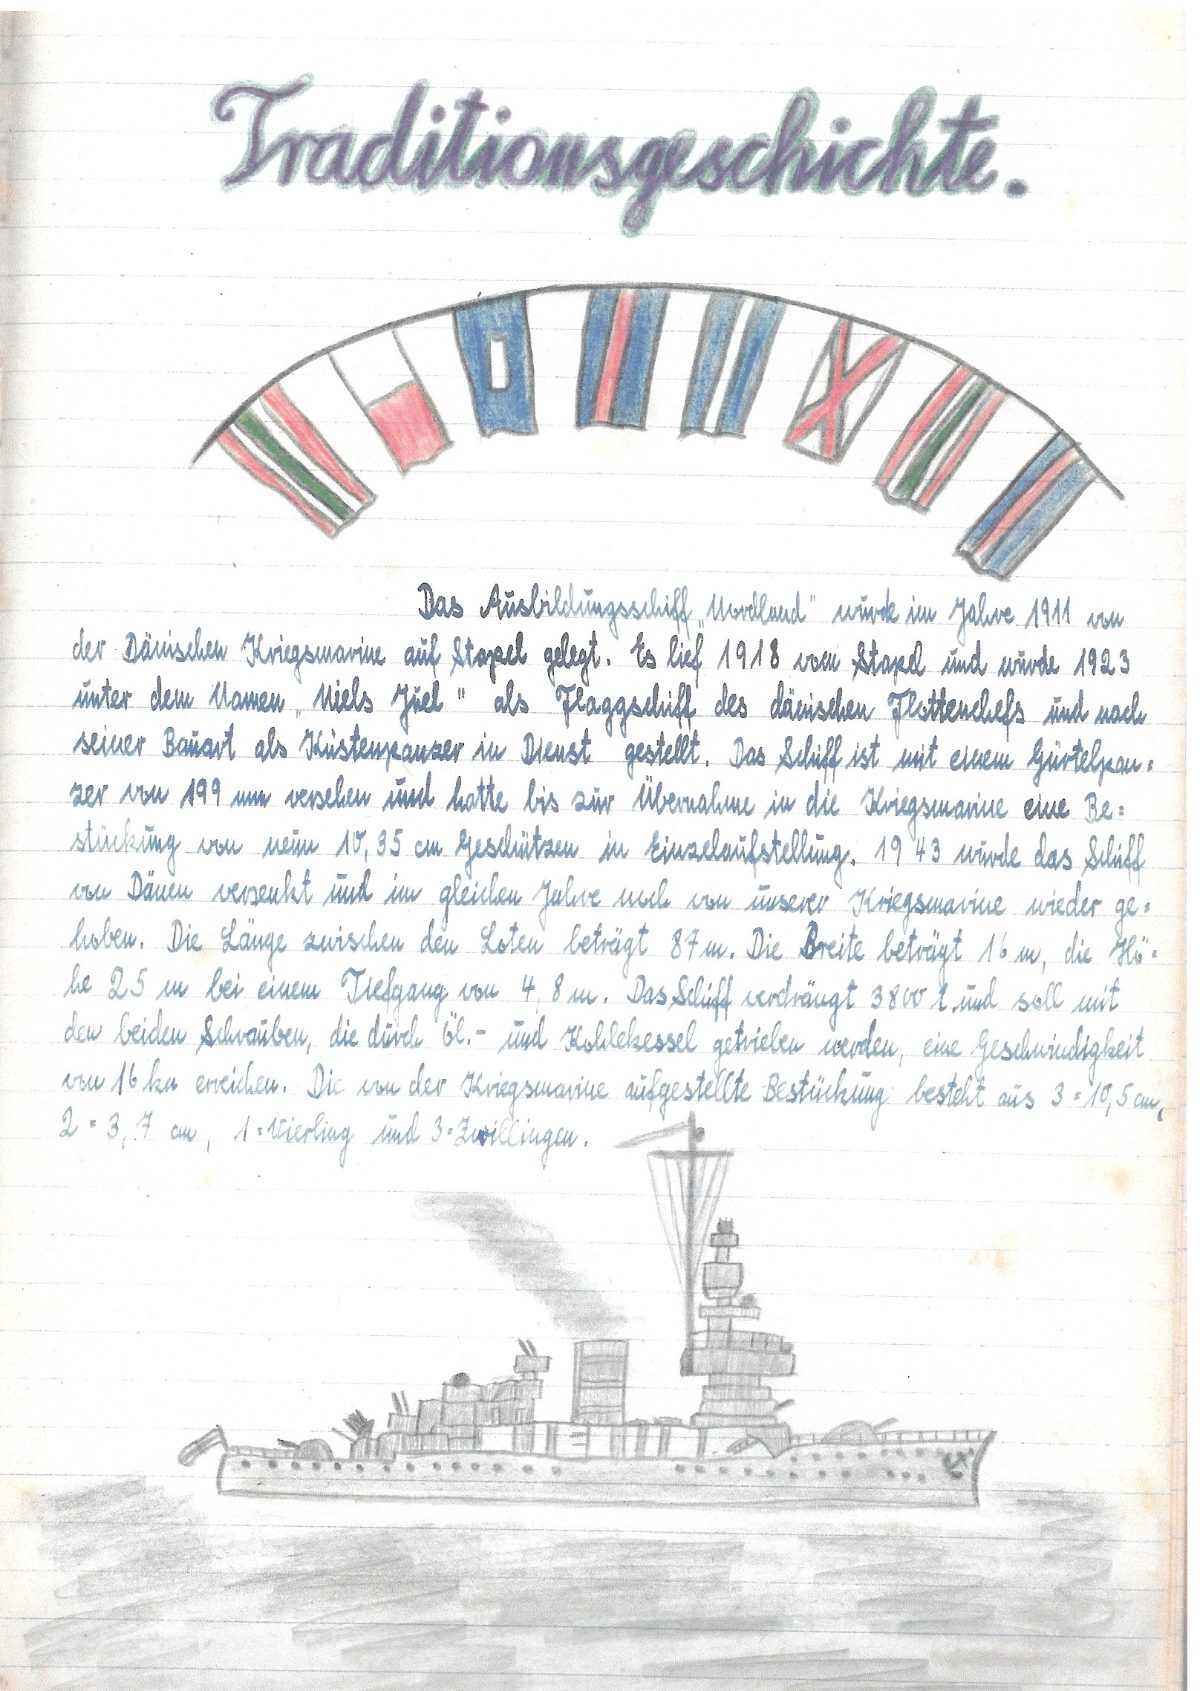 Traditionsgeschichte.
Das Ausbildungsschiff „Nordland" wurde im Jahre 1911 von
der Dänischen Kriegsmarine auf Stapel gelegt. Es lief 1918 vom Stapel und wurde 1923
unter dem Namen „Niels Juel" als Flaggschiff des dänischen Flottenchefs und nach
seiner Bauart als Küstenpanzer in Dienst gestellt. Das Schiff ist mit einem Gürtelpan=
zer von 199 mm versehen und hatte bis zur Übernahme in die Kriegsmarine eine Be=
stückung von neun 10,35 cm Geschützen in Einzelaufstellung. 1943 wurde das Schiff
von Dänen versenkt und im gleichen Jahre noch von unserer Kriegsmarine wieder ge=
hoben. Die Länge zwischen den Loten beträgt 87 m. Die Breite beträgt 16 m, die Hö=
he 25 m bei einem Tiefgang von 4,8 m. Das Schiff verdrängt 3800 t. und soll mit
den beiden Schrauben, die durch Öl.- und Kohlekessel getrieben werden, eine Geschwindigkeit
von 16 kn erreichen. Die von der Kriegsmarine aufgestellte Bestückung besteht aus 3=10,5 cm,
2=3,7 cm, 1=Vierling und 3=Zwillingen.